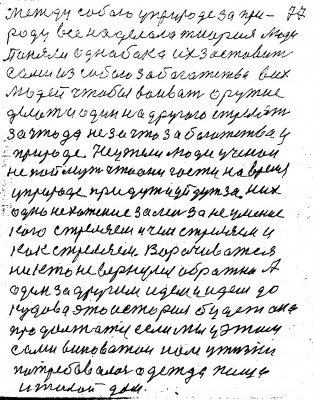 между собою у природе за при- 77
роду все наделала тиория люди
поняли однабака их заставит
сами из собою за богатства всих
людей чтобы воиват оружие
делат и один на другого стрелят
за что да не за что за богатства у
природе. Неужели люди ученои
не поймут что они гости на время
у природе придут и уйдут за них
одно нехотение за мои за не умение
кого стреляем и чем стреляем и
как стреляем Ворачиватся
никто не вернули обратно А
один за другим идем и идем до
кудова это история будет она
продолжат если мы у этом
сами виноватои нам у жизни
потребовалас одежда пища
и жилой дом.